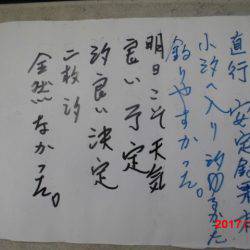 小汐へ入り 汐切
釣りやすかった。
明日こそ天気
良い予定
汐良い決定
二枚汐
全然いなかった。
2017